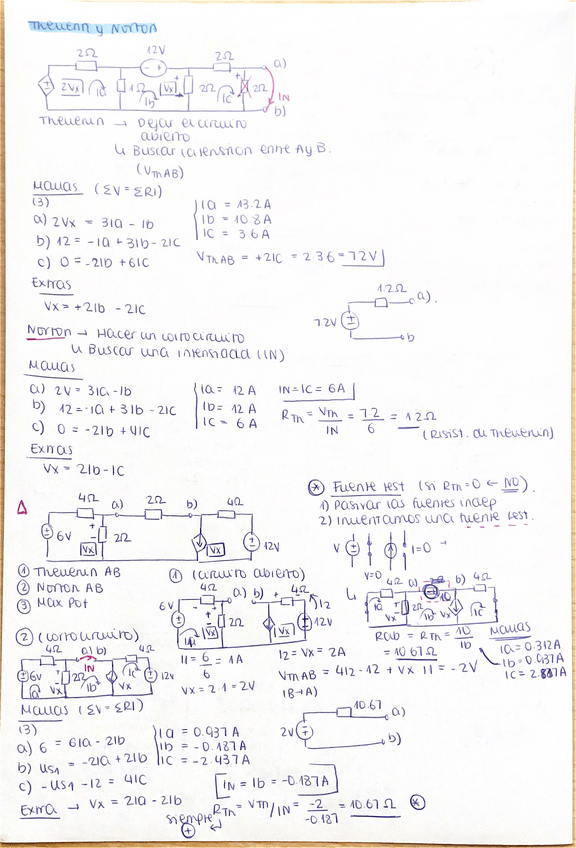 Thevenin y Norton
2Ω 12V 2Ω a)
2Vx Ia 1Ω Ib Vx 2Ω Ic 2Ω IN
b)
Thevenin → Dejar el circuito
abierto
↳ Buscar la tensión entre A y B.
(VThAB)
Mallas (ΣV = ΣRI)
(3)
a) 2Vx = 3Ia - Ib
b) 12 = -Ia + 3Ib - 2Ic
c) 0 = -2Ib + 6Ic
Ia = 13.2 A
Ib = 10.8 A
Ic = 3.6 A
VThAB = +2Ic = 2·3.6 = 7.2V
Extras
Vx = +2Ib - 2Ic
1.2Ω a).
7.2V
b
Norton → Hacer un cortocircuito
↳ Buscar una intensidad (IN)
Mallas
a) 2V = 3Ia - Ib
b) 12 = -Ia + 3Ib - 2Ic
c) 0 = -2Ib + 4Ic
Ia = 12 A
Ib = 12 A
Ic = 6 A
IN = Ic = 6A
RTh = VTh / IN = 7.2 / 6 = 1.2Ω
(Resist. de Thevenin)
Extras
Vx = 2Ib - Ic
Δ
4Ω a) 2Ω b) 4Ω
6V + - 2Ω Vx Vx 12V
* Fuente test (si RTh = 0 ← NO).
1) Pasivar las fuentes indep
2) Inventamos una fuente test.
V I=0
V=0
① Thevenin AB
② Norton AB
③ Max Pot
① (circuito abierto)
4Ω a) b) 4Ω I2
6V I1 + - 2Ω Vx Vx 12V
I1 = 6/6 = 1A
I2 = Vx = 2A
Vx = 2·1 = 2V
VThAB = 4I2 - 12 + Vx I1 = -2V
(B→A)
4Ω a) b) 4Ω
Rab = RTh = 10 / Ib
= 10.67Ω
Mallas
Ia = 0.312A
Ib = 0.937A
② (cortocircuito)
4Ω a) b) IN 4Ω
6V Ia 2Ω Vx Ib Vx Ic 12V
Mallas (ΣV = ΣRI)
(3)
a) 6 = 6Ia - 2Ib
b) Us1 = -2Ia + 2Ib
c) -Us1 - 12 = 4Ic
Ia = 0.937A
Ib = -0.187A
Ic = -2.437A
10.67 a)
2V
b)
IN = Ib = -0.187A
Extra → Vx = 2Ia - 2Ib
siempre +
RTh = VTh/IN = -2 / -0.187 = 10.67Ω *